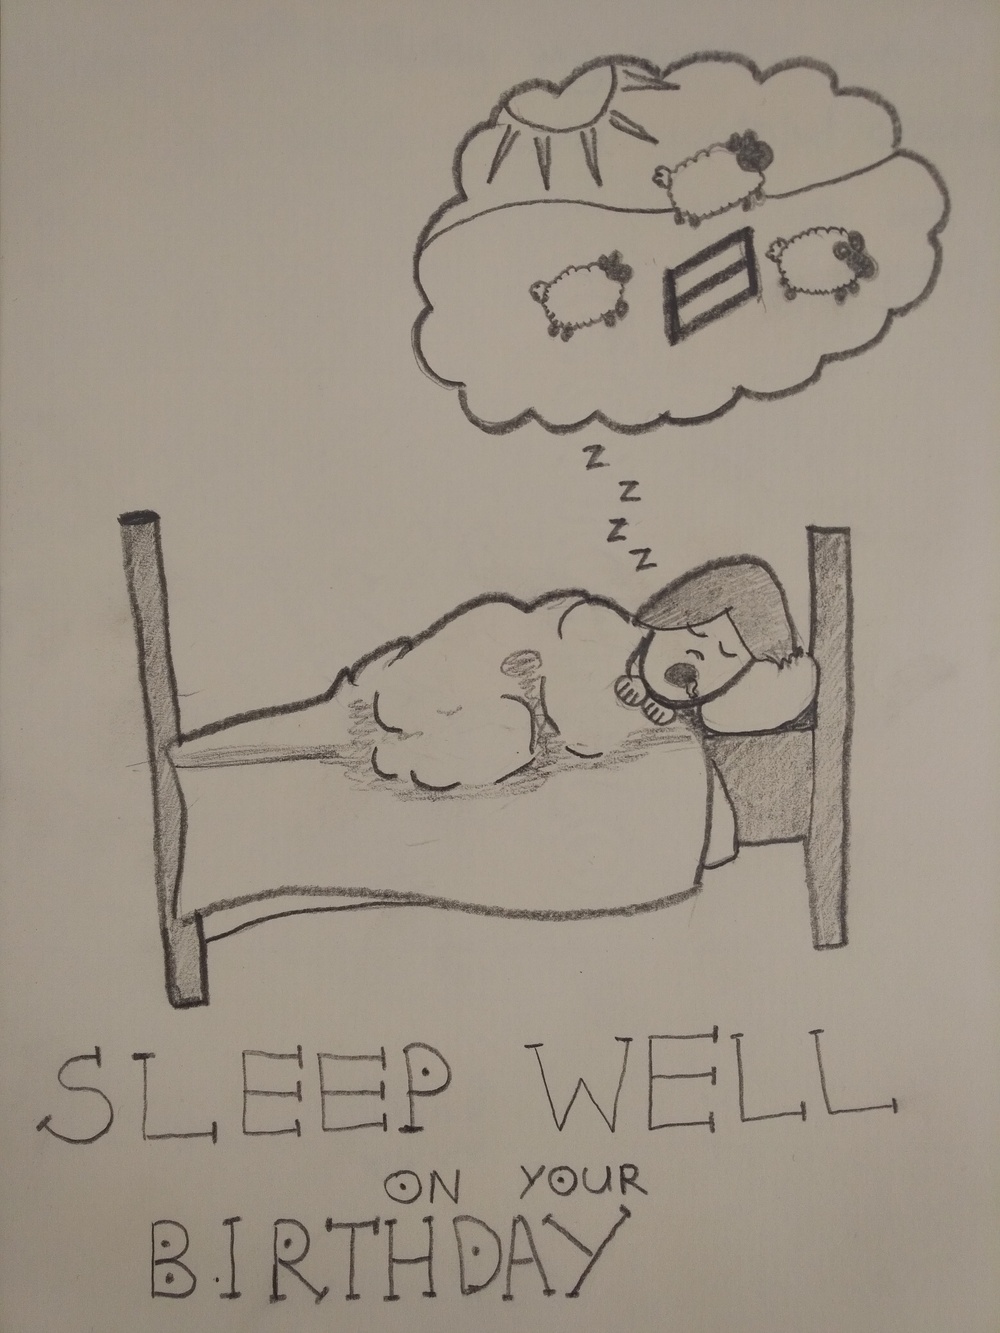 z
z
z
z
SLEEP WELL
ON YOUR
BIRTHDAY